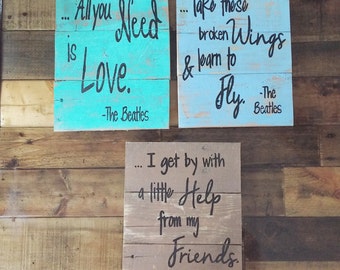 ... All you Need
is
Love.
-The Beatles
... Take these
broken Wings
& learn to
Fly. -The
Beatles
... I get by with
a little Help
from my
Friends.